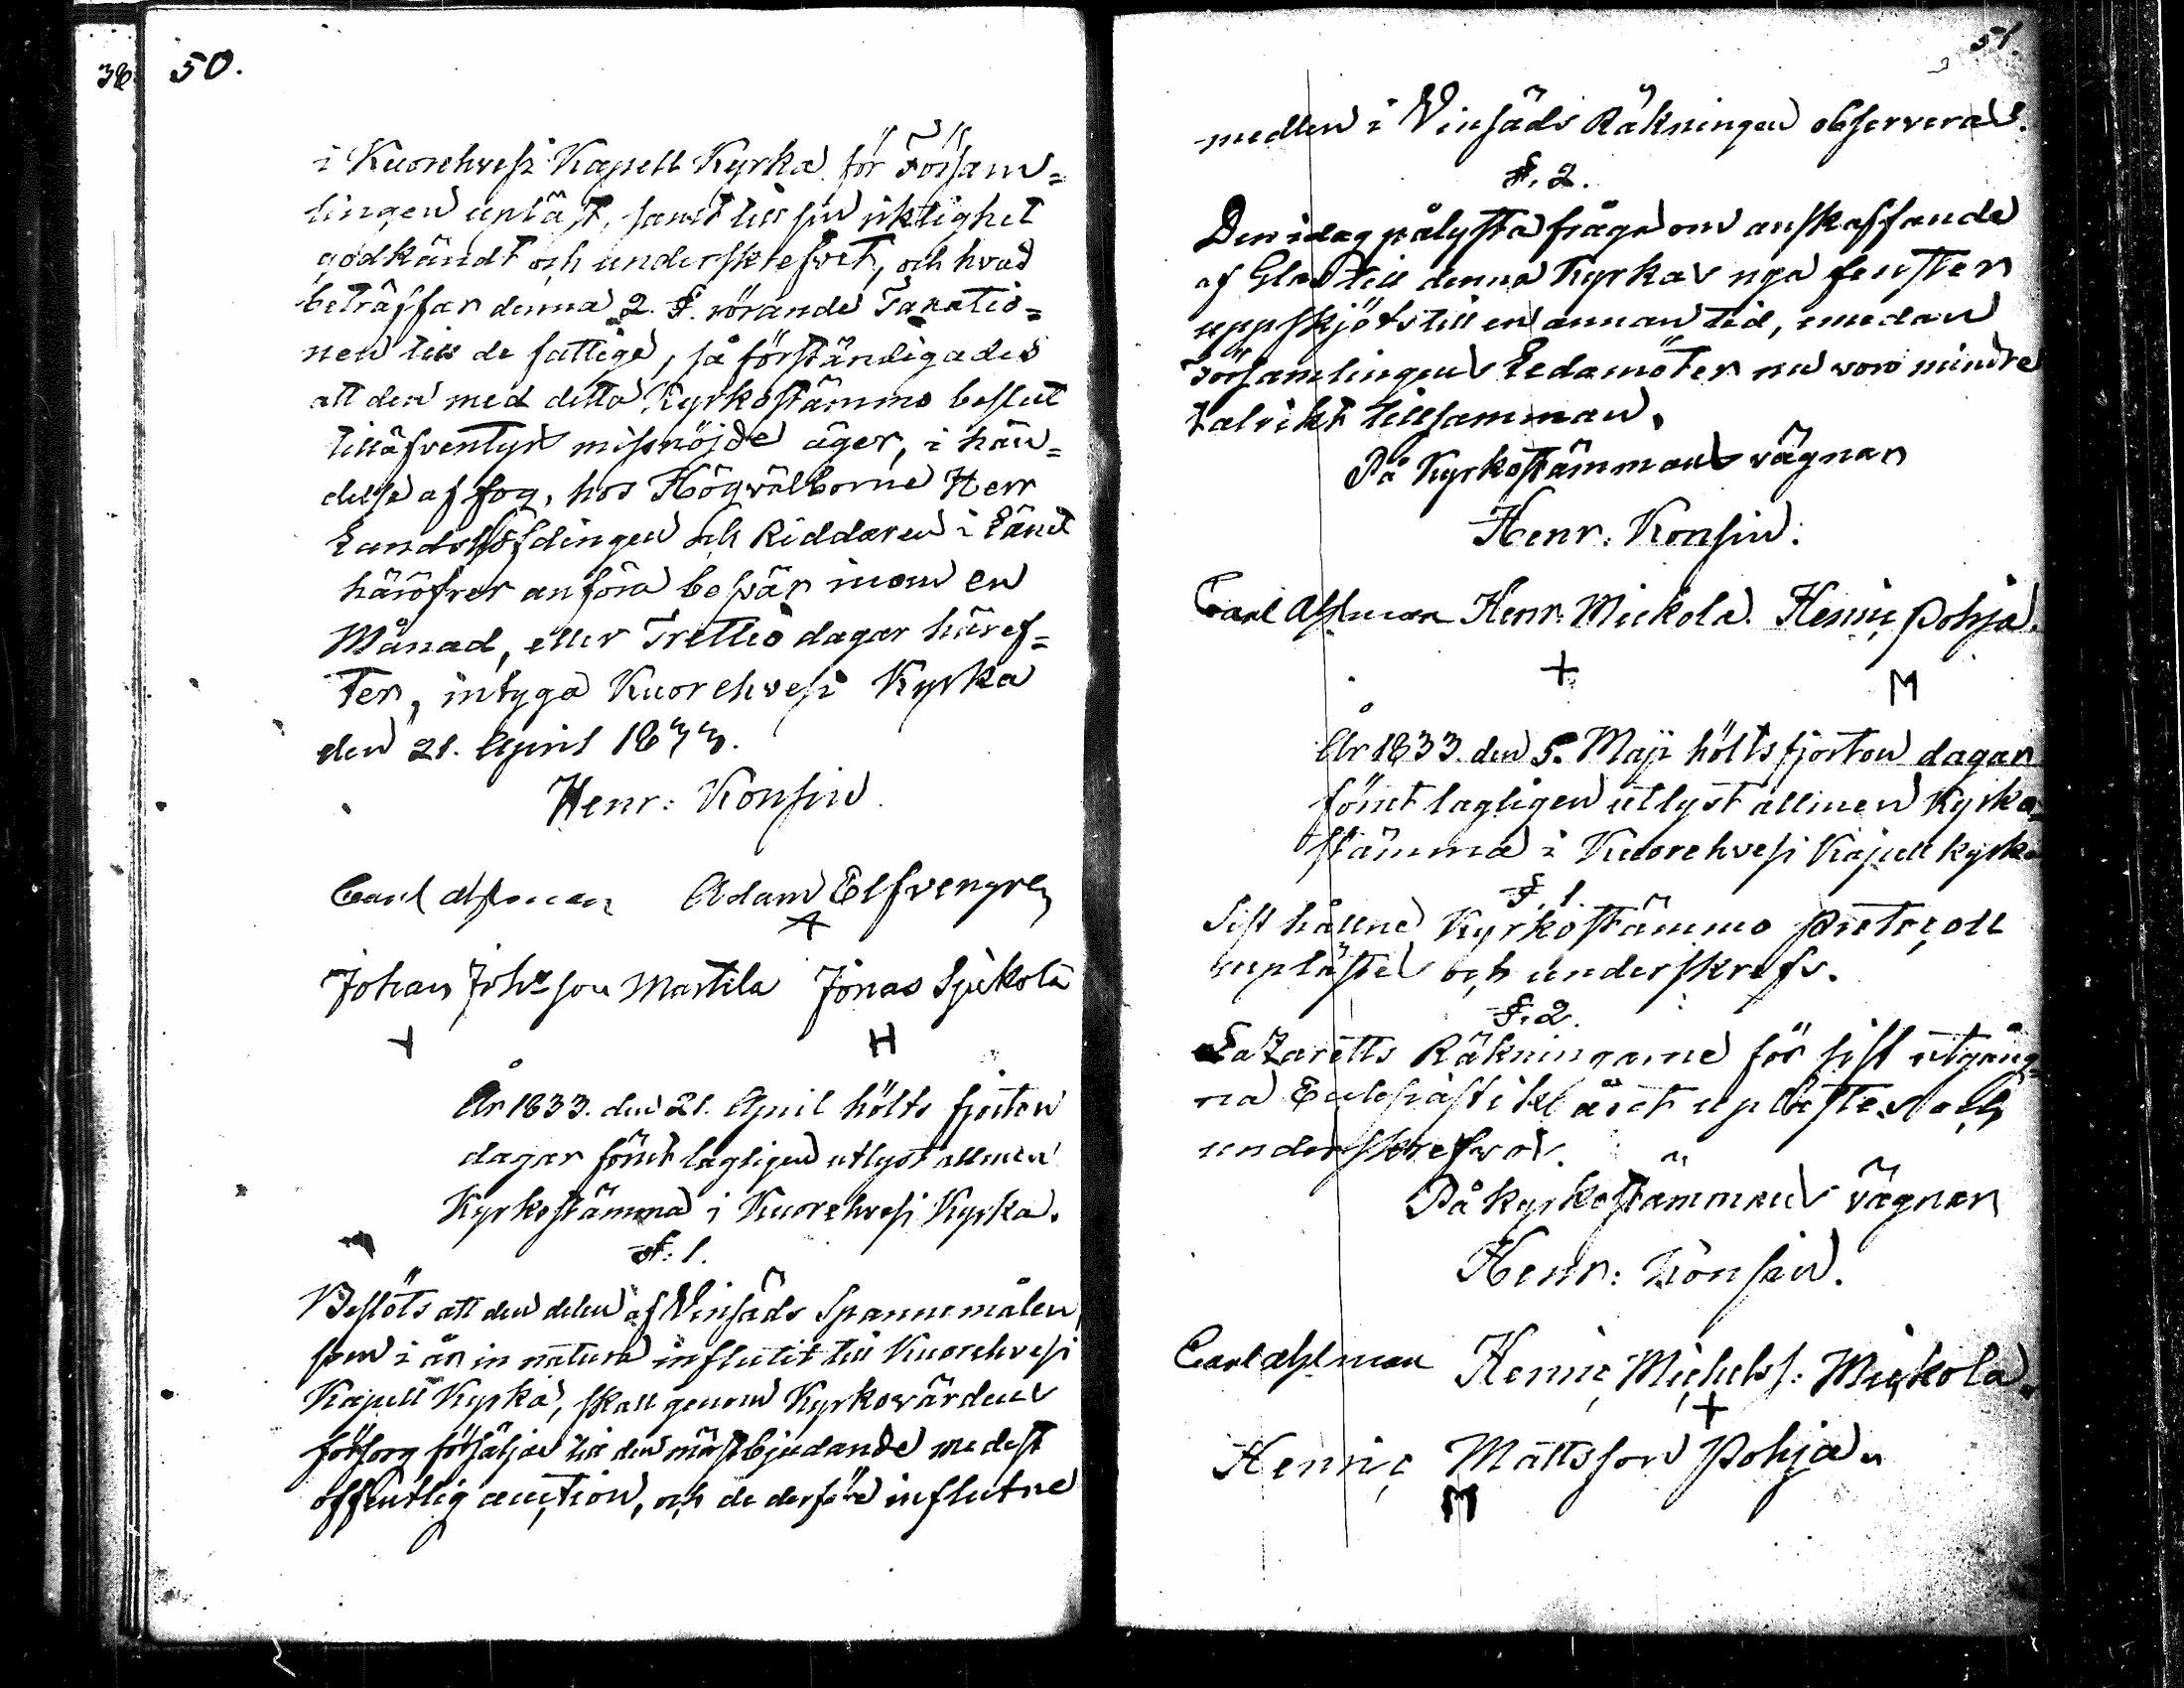 38.
50.
i Kuorehvesi Kapell Kyrka för Försam=
lingen upläst, samt till sin riktighet
godkändt och underskrefvet, och hvad
beträffar denna 2. §. rörande Taxatio=
nen till de fattige, så förständigades
att den med detta Kyrkostämmo beslut
tilläfventyrs missnöjde äger, i hän=
delse af fog, hos Högvälborne Herr
Landshöfdingen och Riddaren i Länet
häröfver anföra besvär inom en
Månad, eller Trettio dagar häref=
ter, intyga Kuorehvesi Kyrka
den 21. April 1833.
Henr: Konsin
Carl Ahlman Adam Elfvengren
Johan Johsson Martila Jonas Sjukola
H
År 1833. den 21. April hölts fjorton
dagar förut lagligen utlyst allmen
Kyrkostämma i Kuorehvesi Kyrka.
§: 1.
Beslöts att den delen af Vinsäds Spannemålen,
som i år in natura influtit till Kuorehvesi
Kapell Kyrka, skall genom Kyrkovärdens
försorg försäljas till den mäst bjudande medelst
offentlig auction, och de derföre influtne
51.
medlen i Vinsäds Räkningen observeras.
§. 2.
Den idag pålysta fråga om anskaffande
af Glas till denna Kyrkas nya fenster
uppskjöts till en annan tid, emedan
Församlingens Ledamöter nu voro mindre
talrikt tillsamman.
På Kyrkostämmans vägnar
Henr. Konsin.
Carl Ahlman Henr. Mickola. Henric Pohja.
+ M
År 1833. den 5. Maji hölts fjorton dagar
förut lagligen utlyst allmen Kyrko=
stämma i Kuorehvesi Kapell kyrka
§. 1.
Sist hållne Kyrkostämmo Protocoll
uplästes och underskrefs.
§. 2.
Lazaretts Räkningarne för sist utgång=
na Ecclesiastik året uplästes och
underskrefvos.
På kyrkostämmans vägnar
Henr: Konsin.
Carl Ahlman Henric Michelss: Mickola.
+
Henric Mattsson Pohja.
M